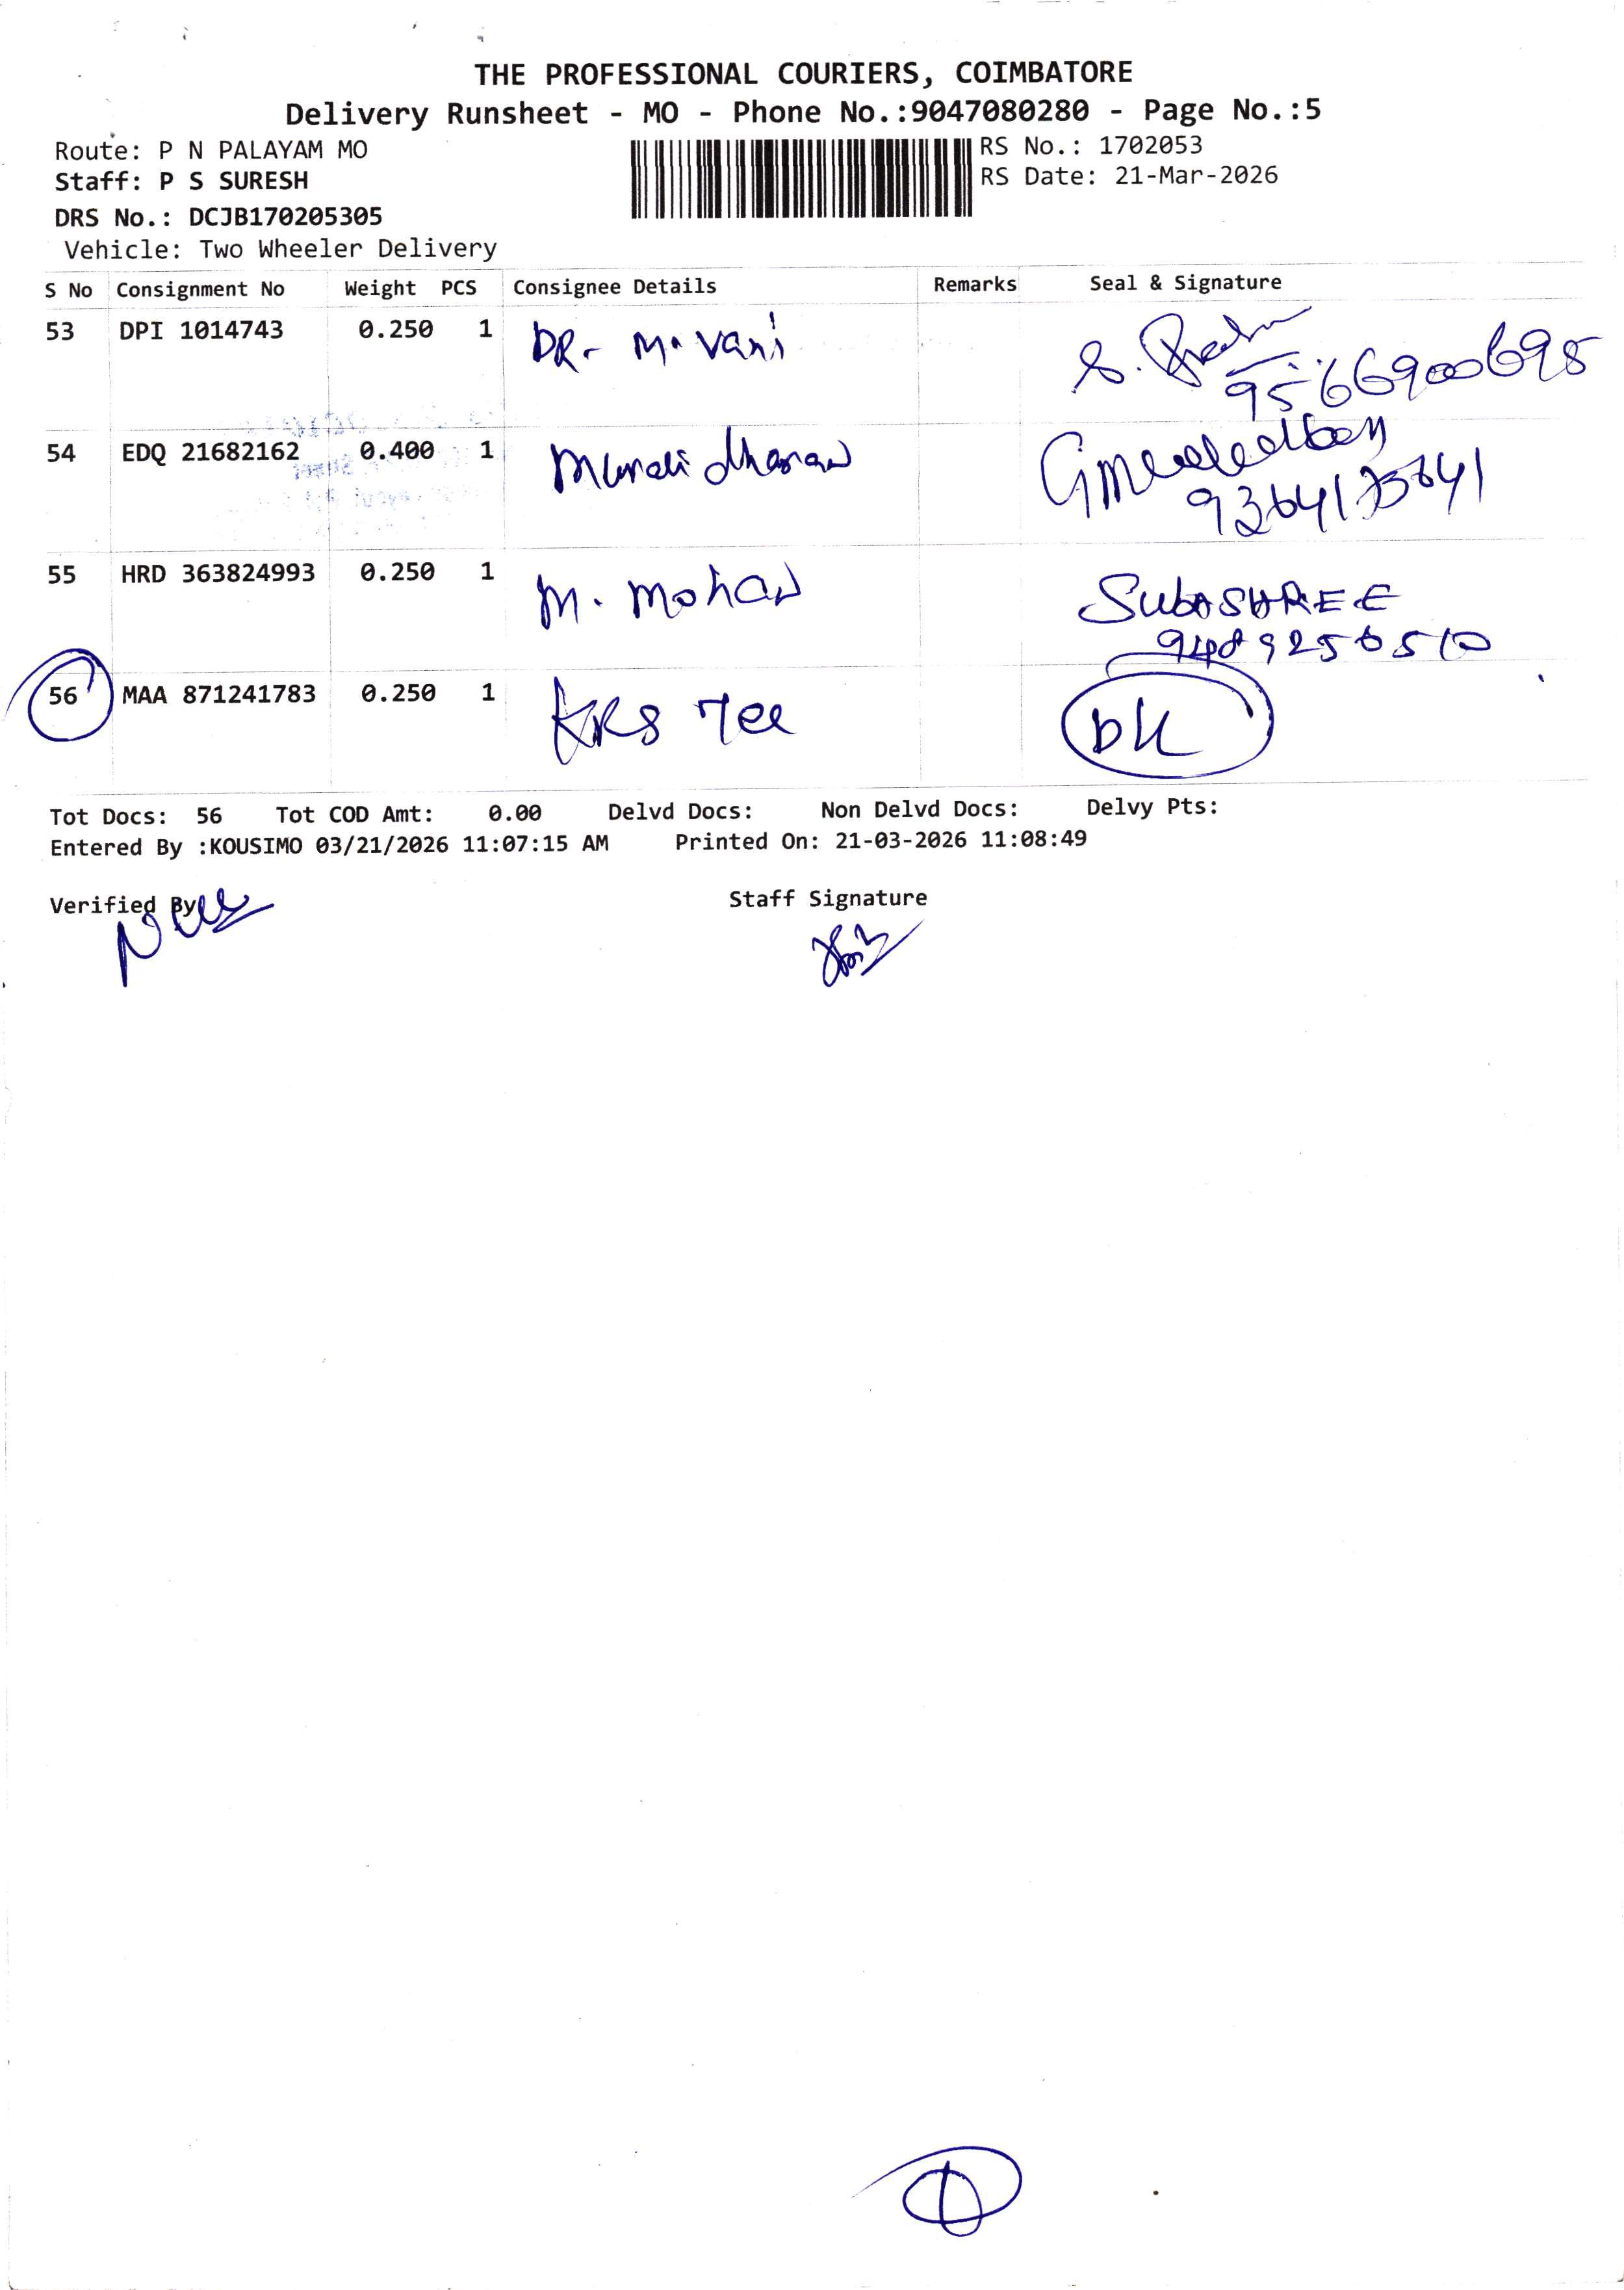 THE PROFESSIONAL COURIERS, COIMBATORE
Delivery Runsheet - MO - Phone No.:9047080280 - Page No.:5
Route: P N PALAYAM MO
RS No.: 1702053
Staff: P S SURESH
RS Date: 21-Mar-2026
DRS No.: DCJB170205305
Vehicle: Two Wheeler Delivery
S No Consignment No Weight PCS Consignee Details Remarks Seal & Signature
53 DPI 1014743 0.250 1 DR. M. Vani S.
9566900695
54 EDQ 21682162 0.400 1 Muralidharan
55 HRD 363824993 0.250 1 M. Mohan SubASHREE
9489256510
56 MAA 871241783 0.250 1 KRS Tee
Tot Docs: 56 Tot COD Amt: 0.00 Delvd Docs: Non Delvd Docs: Delvy Pts:
Entered By :KOUSIMO 03/21/2026 11:07:15 AM Printed On: 21-03-2026 11:08:49
Verified By
Staff Signature